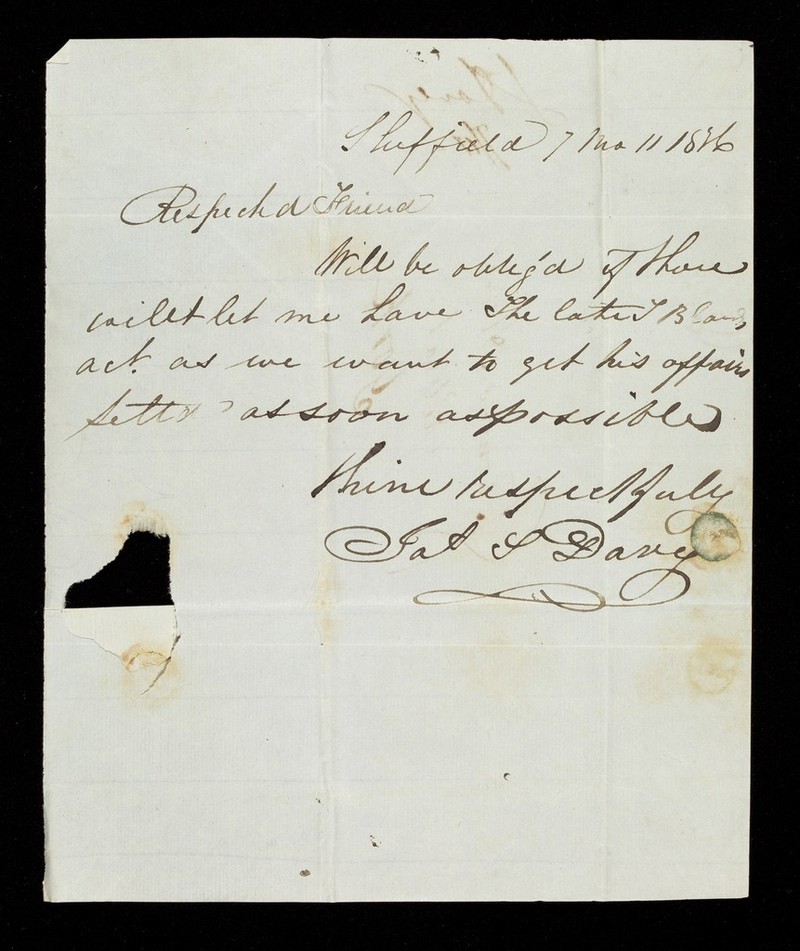 Sheffield 7 mo 11 1836
Respected Friend
Will be oblig'd if thou
wilet let me have The late J
act. as we want to get his affairs
settd as soon as possible
thine respectfully
Jos S Davy